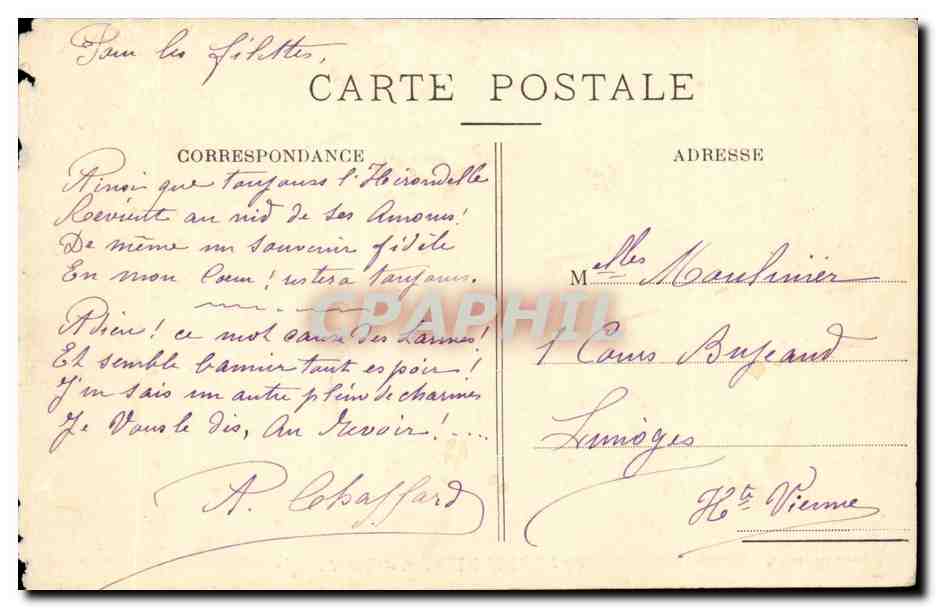 Pour les filettes,
CARTE POSTALE
CORRESPONDANCE
Ainsi que toujours l'Hirondelle
Revient au nid de ses Amours!
De même un souvenir fidèle
En mon Cœur! restera toujours.
Adieu! ce mot cause des Larmes!
Et semble bannir tout espoir!
J'en sais un autre plein de charmes
Je Vous le dis, Au Revoir!....
A. Chaffard
ADRESSE
Melles Moulinier
1 Cours Bugeaud
Limoges
Hte Vienne
CPAPHIL